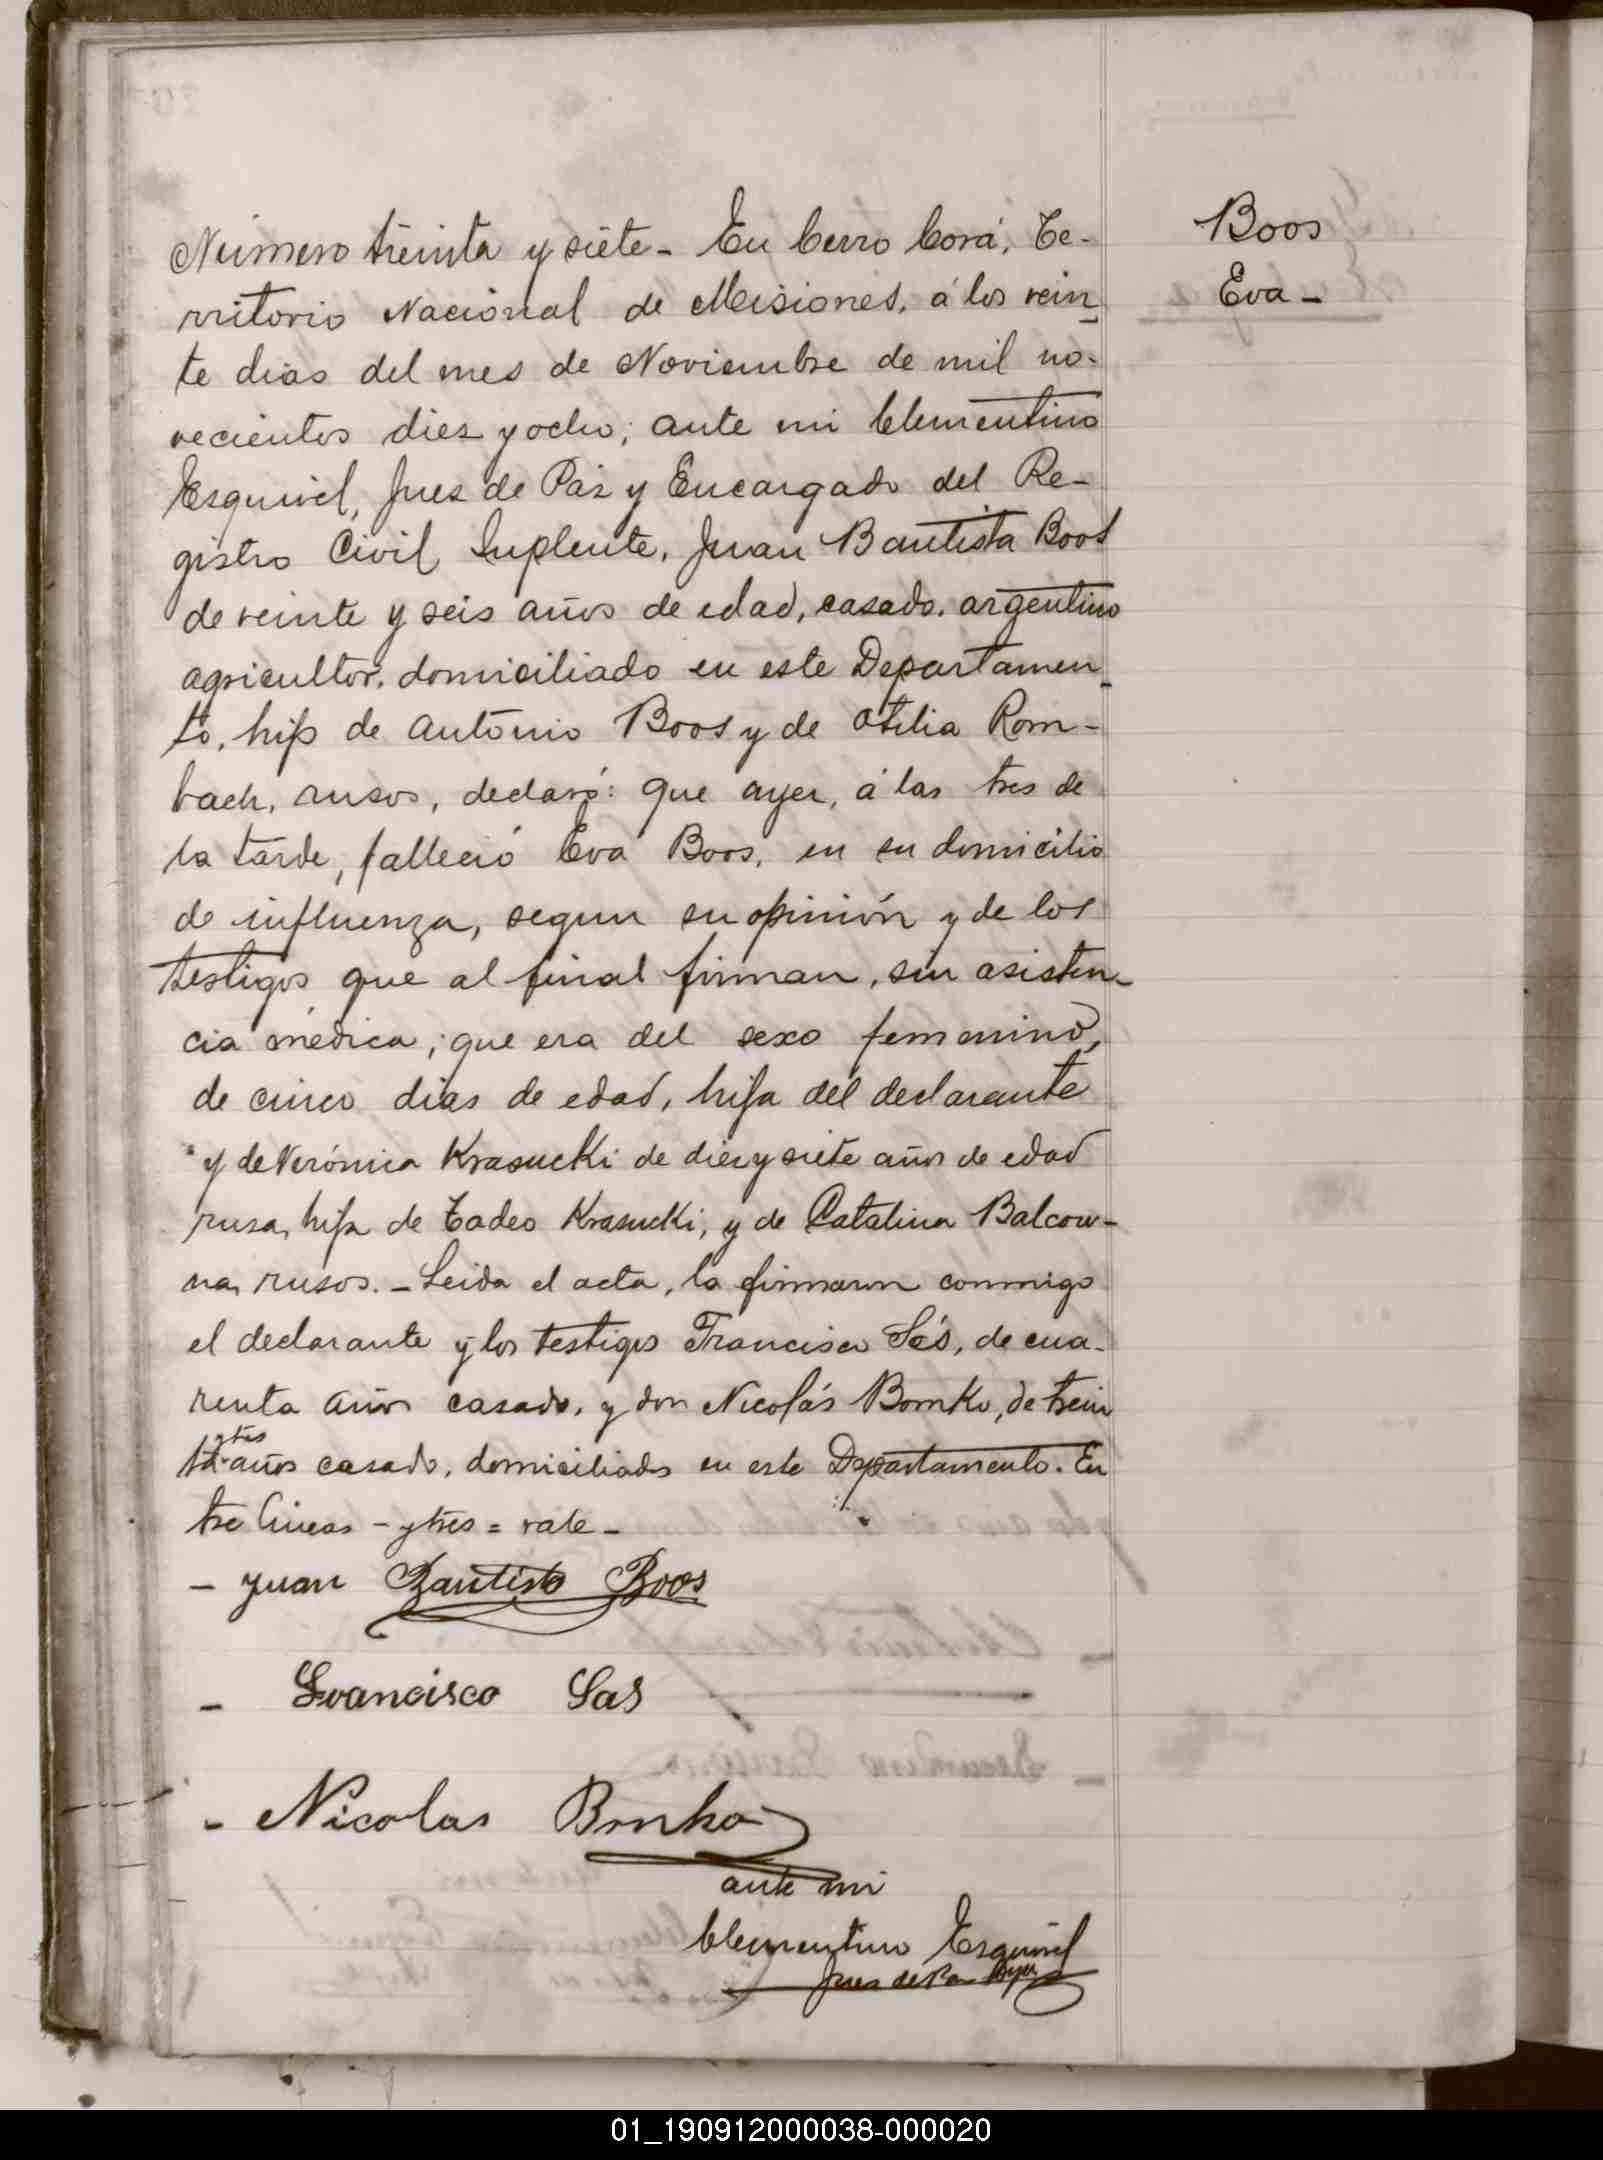 Boos
Eva -
Número treinta y siete - En Cerro Corá, Te-
rritorio Nacional de Misiones, á los vein
te dias del mes de Noviembre de mil no-
vecientos diez y ocho; ante mi Clementino
Esquivel, Juez de Paz y Encargado del Re-
gistro Civil Suplente, Juan Bautista Boos
de veinte y seis años de edad, casado, argentino
agricultor, domiciliado en este Departamen
to, hijo de Antonio Boos y de Otilia Rom-
bach, rusos, declaró: que ayer, á las tres de
la tarde, falleció Eva Boos, en su domicilio
de influenza, segun su opinión y de los
testigos que al final firman, sin asisten-
cia médica; que era del sexo femenino,
de cinco dias de edad, hija del declarante
y de Verónica Krasucki de diez y siete años de edad
rusa, hija de Tadeo Krasucki, y de Catalina Balcow-
na, rusos. - Leida el acta, la firmaron conmigo
el declarante y los testigos Francisco Sás, de cua-
renta años casado, y don Nicolás Bomko, de trein
y tres
ta años casado, domiciliados en este Departamento. En
tre lineas - y tres = vale -
- Juan Bautista Boos
- Francisco Sas
- Nicolas
ante mi
Clementino Esquivel
Juez de Paz
01_190912000038-000020